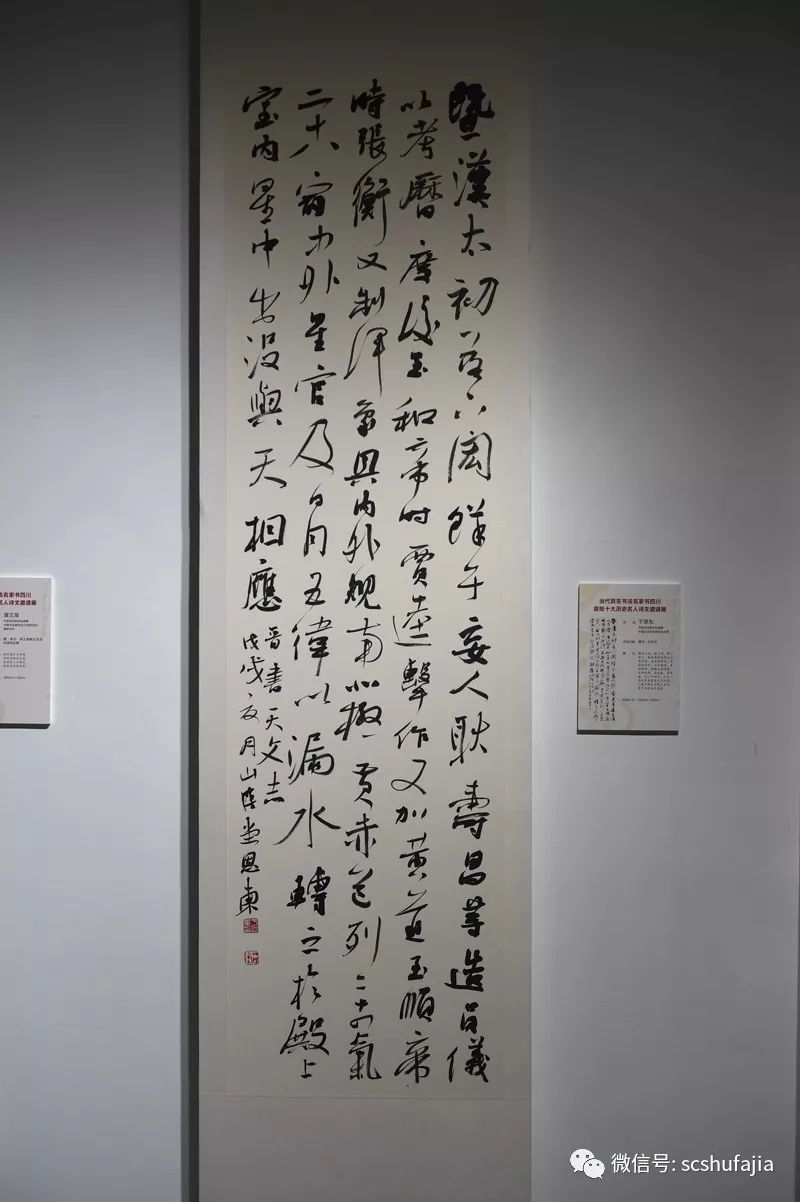 暨漢太初落下閎鮮于妄人耿壽昌等造員儀
以考曆度後至和帝時賈逵擊作又加黃道至順帝
時張衡又制渾象具內外規南北極黃赤道列二十四氣
二十八宿中外星官及日月五緯以漏水轉之於殿上
室內星中出沒與天相應
晉書天文志
戊戌夏月山
当代百名书法名家书四川
首批十大历史名人诗文邀请展
法名家书四川
名人诗文邀请展
微信号: scshufajia